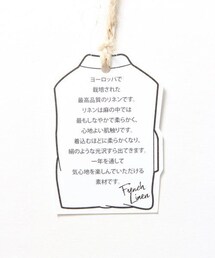 ヨーロッパで
栽培された
最高品質のリネンです。
リネンは麻の中では
最もしなやかで柔らかく、
心地よい肌触りです。
着込むほどに柔かくなり、
絹のような光沢すら出てきます。
一年を通して
気心地を楽しんでいただける
素材です。
French
Linen